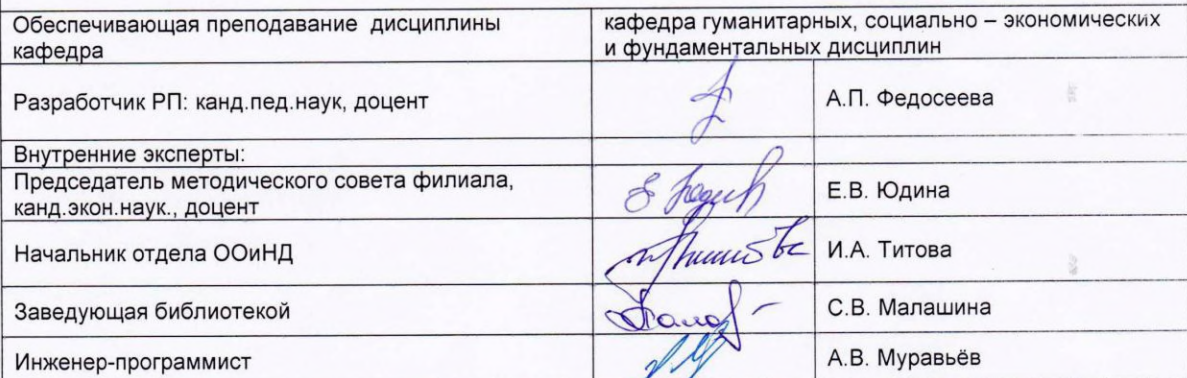 Обеспечивающая преподавание дисциплины
кафедра
кафедра гуманитарных, социально – экономических
и фундаментальных дисциплин
Разработчик РП: канд.пед.наук, доцент
А.П. Федосеева
Внутренние эксперты:
Председатель методического совета филиала,
канд.экон.наук., доцент
Е.В. Юдина
Начальник отдела ООиНД
И.А. Титова
Заведующая библиотекой
С.В. Малашина
Инженер-программист
А.В. Муравьёв